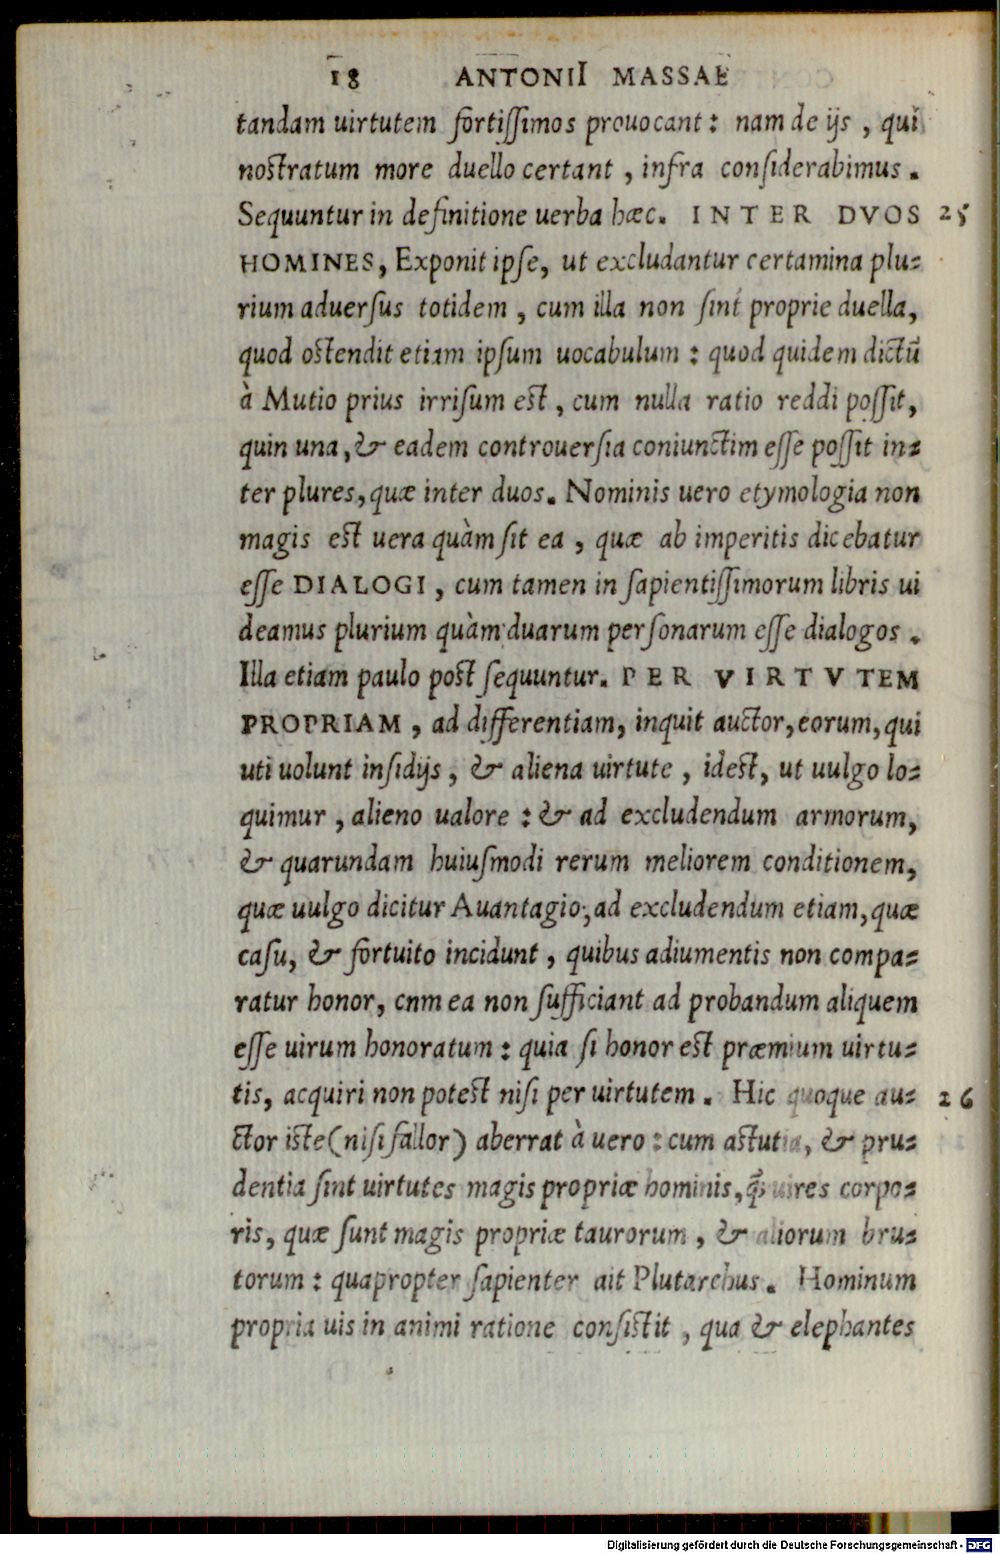 18 ANTONII MASSAE
tandam uirtutem fortissimos prouocant: nam de ijs, qui
nostratum more duello certant, infra considerabimus.
Sequuntur in definitione uerba hæc. INTER DVOS 25
HOMINES, Exponit ipse, ut excludantur certamina plu=
rium aduersus totidem, cum illa non sint proprie duella,
quod ostendit etiam ipsum uocabulum: quod quidem dictū
à Mutio prius irrisum est, cum nulla ratio reddi possit,
quin una, & eadem controuersia coniunctim esse possit in=
ter plures, quæ inter duos. Nominis uero etymologia non
magis est uera quàm sit ea, quæ ab imperitis dicebatur
esse DIALOGI, cum tamen in sapientissimorum libris ui
deamus plurium quàm duarum personarum esse dialogos.
Illa etiam paulo post sequuntur. PER VIRTVTEM
PROPRIAM, ad differentiam, inquit auctor, eorum, qui
uti uolunt insidijs, & aliena uirtute, idest, ut uulgo lo=
quimur, alieno ualore: & ad excludendum armorum,
& quarundam huiusmodi rerum meliorem conditionem,
quæ uulgo dicitur Auantagio; ad excludendum etiam, quæ
casu, & fortuito incidunt, quibus adiumentis non compa=
ratur honor, cnm ea non sufficiant ad probandum aliquem
esse uirum honoratum: quia si honor est præmium uirtu=
tis, acquiri non potest nisi per uirtutem. Hic quoque au= 26
ctor iste (nisi fallor) aberrat à uero: cum astutia, & pru=
dentia sint uirtutes magis propriæ hominis, q̃ uires corpo=
ris, quæ sunt magis propriæ taurorum, & aliorum bru=
torum: quapropter sapienter ait Plutarchus. Hominum
propria uis in animi ratione consistit, qua & elephantes
Digitalisierung gefördert durch die Deutsche Forschungsgemeinschaft - DFG